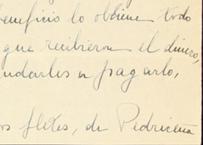 beneficio lo obtiene todo
que recibieron el dinero,
udarles a pagarlo,
os fletes, de Pedriceña